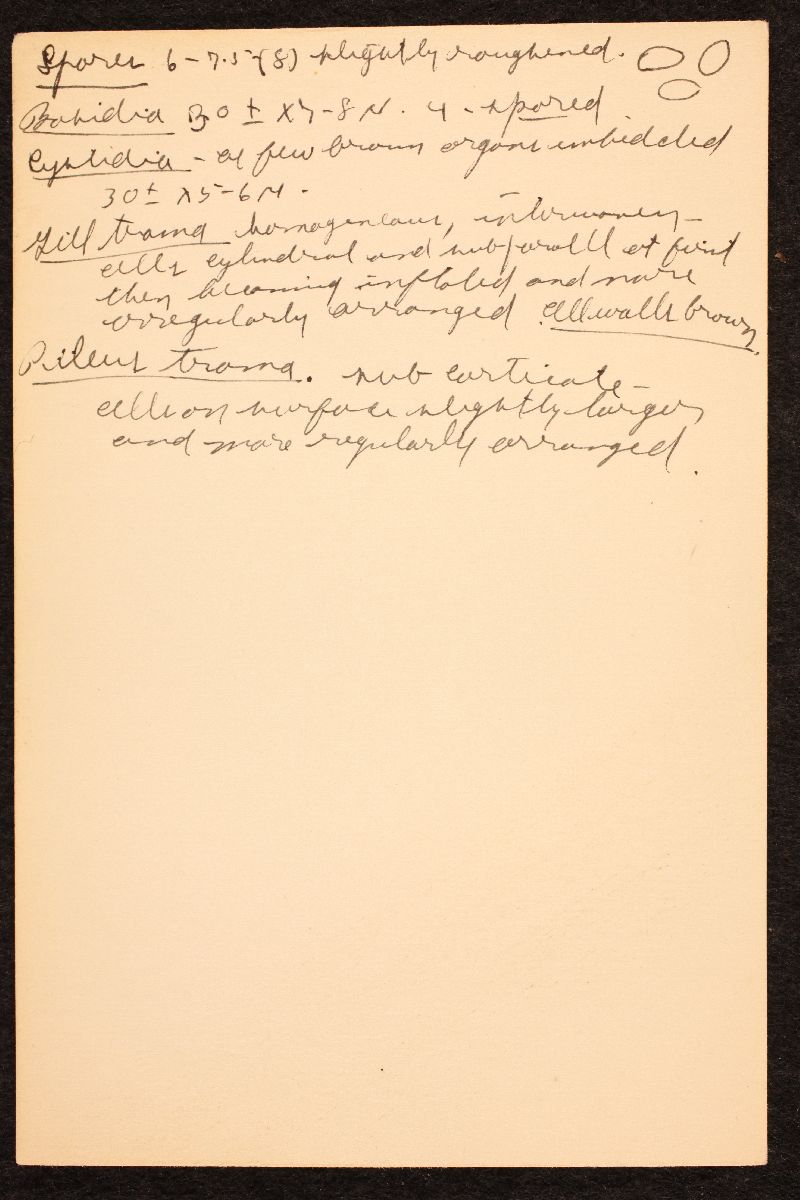 Spores 6-7.5-(8) slightly roughened.
Basidia 30 ± x 7-8 µ. 4-spored
Cystidia - a few brown organs imbedded
30± x 5-6 µ.
Gill trama homogeneous, interwoven -
cells cylindral and subparallel at first
then becoming inflated and more
irregularly arranged cell walls brown.
Pileus trama. sub corticate -
cells on surface slightly larger
and more regularly arranged.